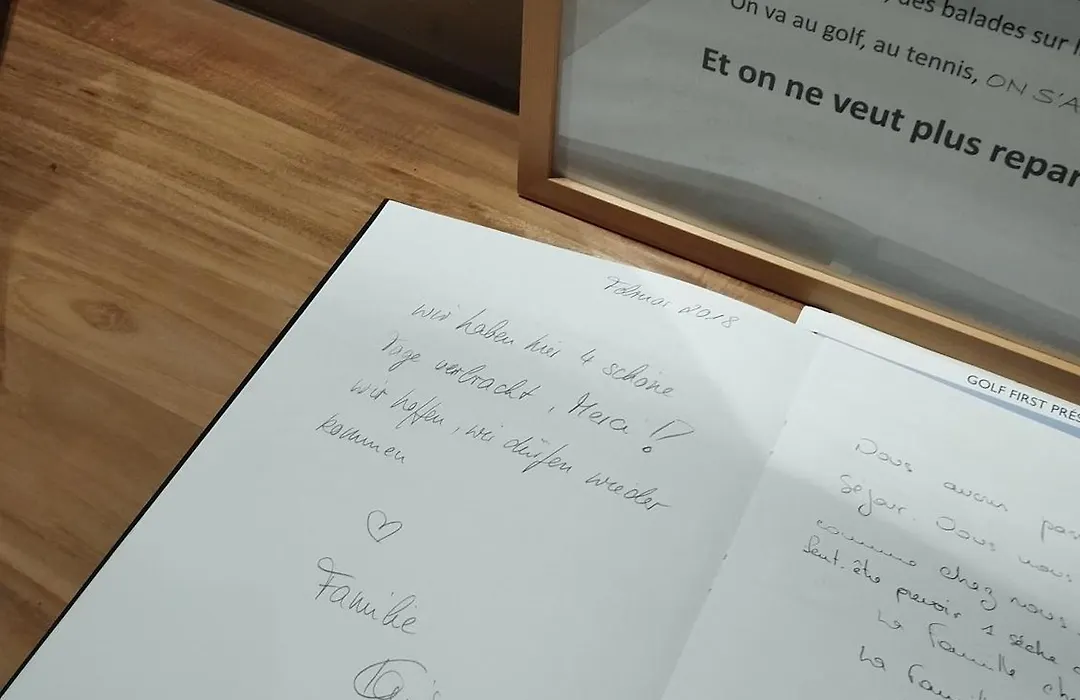 des balades sur l
On va au golf, au tennis, ON S'A
Et on ne veut plus repar
Februar 2018
wir haben hier 4 schöne
Tage verbracht, Merci!
wir hoffen, wir dürfen wieder
kommen
♡
Familie
GOLF FIRST PRÉS
Nous avons pas
Séjour. Nous nous
comme chez nous
Peut-être prévoir 1 sèche
La Famille
La Famil